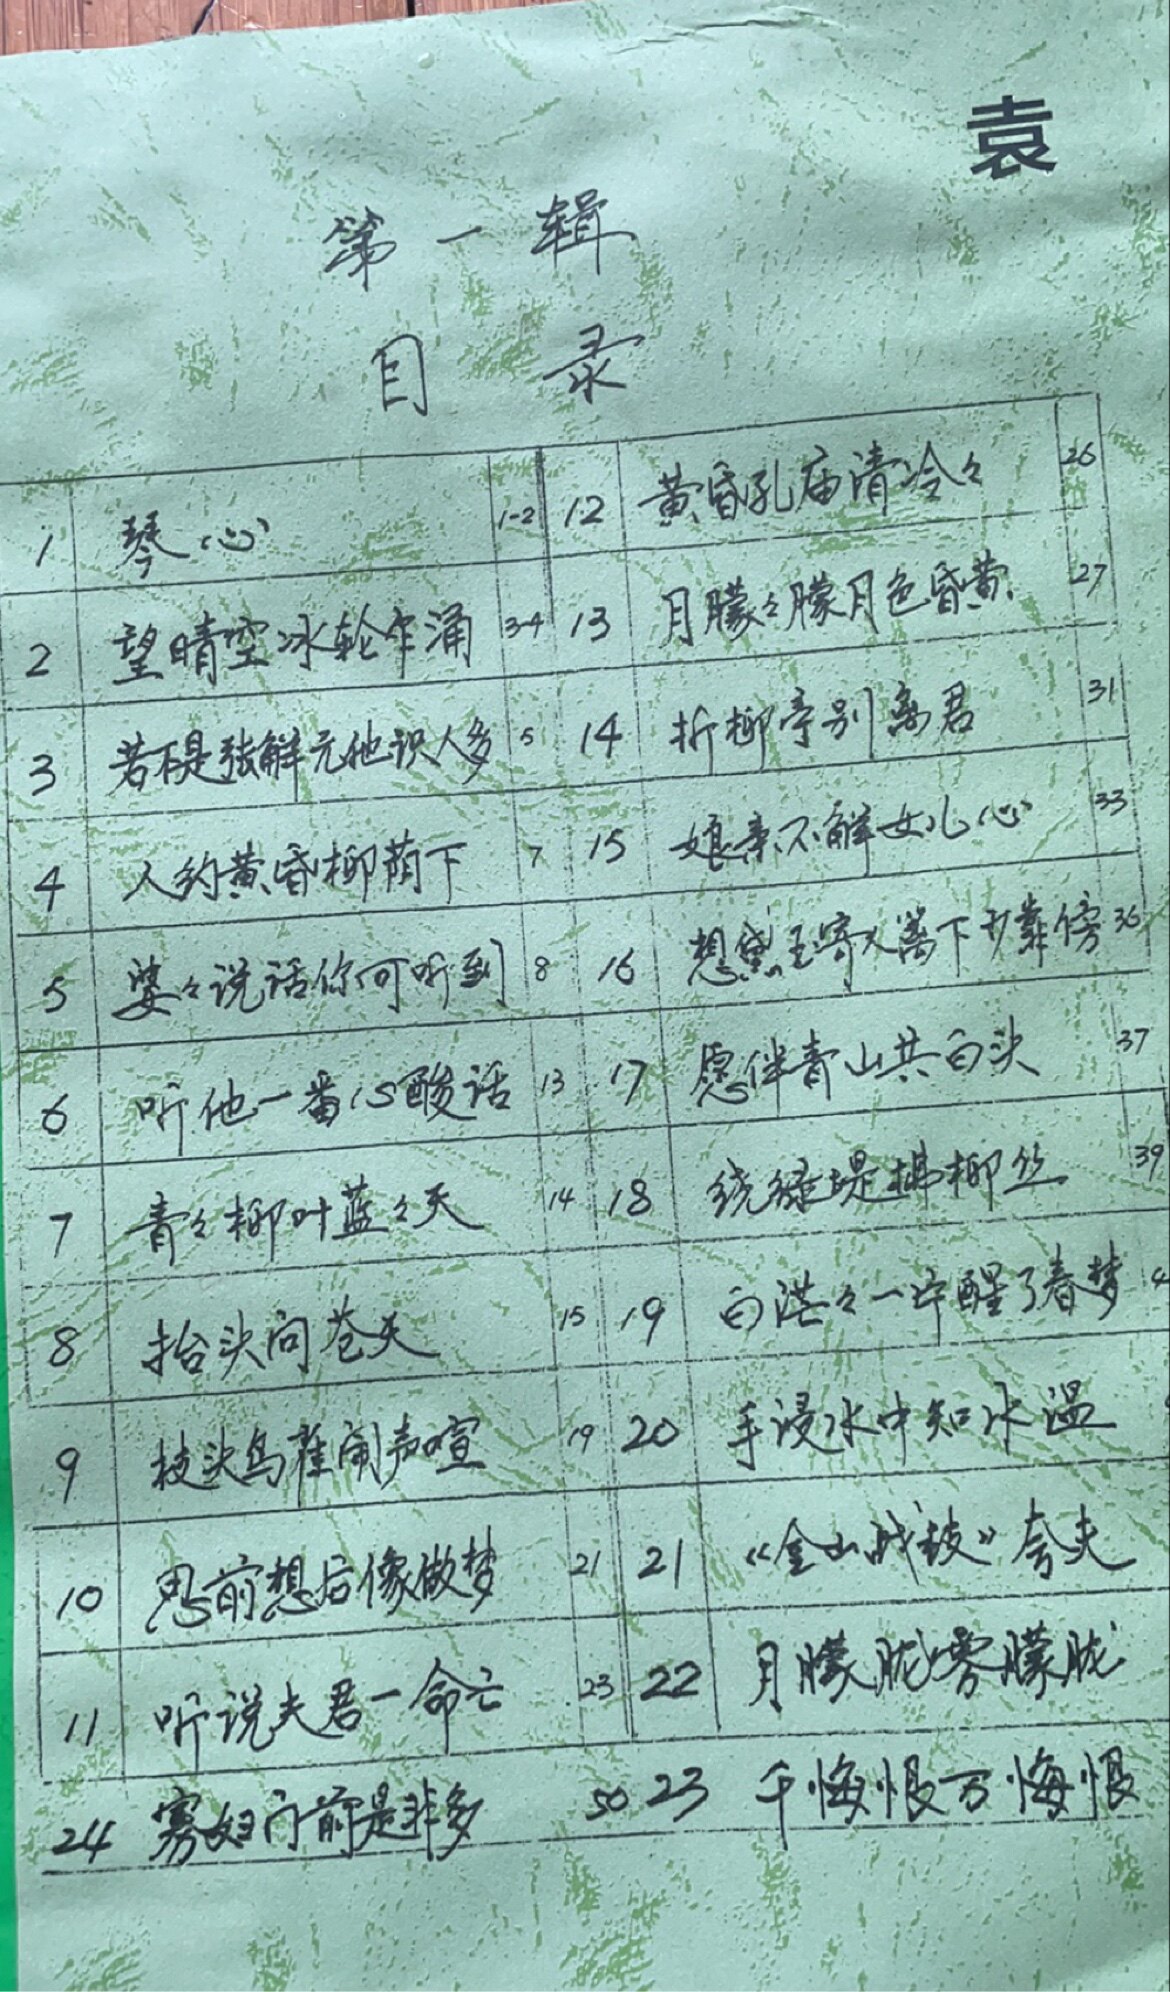 袁
第一辑
目录
1 琴心 1-2 12 黄昏孔庙清冷々 26
2 望晴空冰轮乍涌 3-4 13 月朦々朦月色昏黄 27
3 若不是张解元他识人多 5 14 折柳亭别离君 31
4 人约黄昏柳荫下 7 15 娘亲不解女儿心 33
5 婆々说话你可听到 8 16 想黛玉寄人篱下 靠傍 36
6 听他一番心酸话 13 17 愿伴青山共白头 37
7 青々柳叶蓝々天 14 18 绕绿堤拂柳丝 39
8 抬头问苍天 15 19 白茫々一片醒了春梦 4
9 枝头鸟雀闹声喧 19 20 手浸水中知水温
10 思前想后像做梦 21 21 《金山战鼓》夸夫
11 听说夫君一命亡 23 22 月朦胧雾朦胧
24 寡妇门前是非多 50 23 千悔恨万悔恨